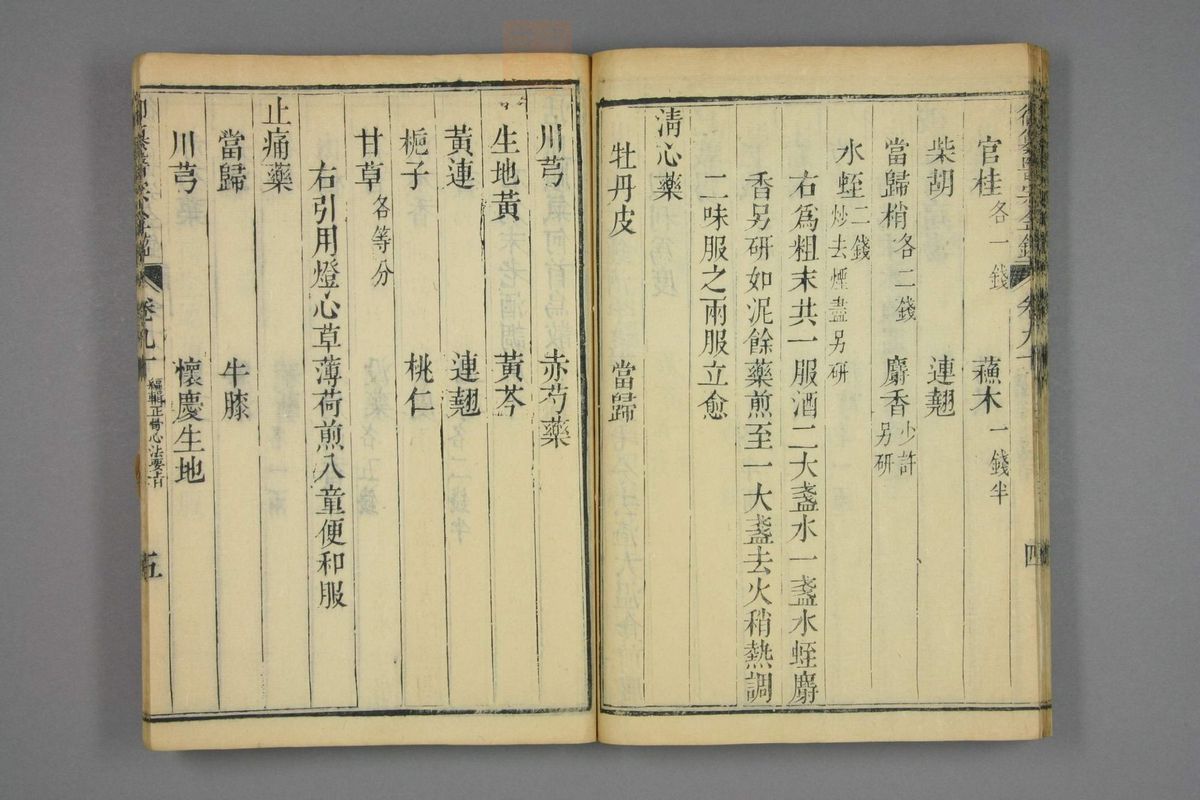 官桂各一錢 蘓木一錢半
柴胡 連翹
當歸梢各二錢 麝香少許另研
水蛭二錢炒去煙盡另研
右爲粗末共一服酒二大盞水一盞水蛭麝
香另研如泥餘藥煎至一大盞去火稍熱調
二味服之兩服立愈
淸心藥
牡丹皮 當歸
川芎 赤芍藥
生地黃 黃芩
黃連 連翹
梔子 桃仁
甘草各等分
右引用燈心草薄荷煎入童便和服
止痛藥
當歸 牛膝
川芎 懷慶生地
卷九十 編輯正骨心法要旨 五